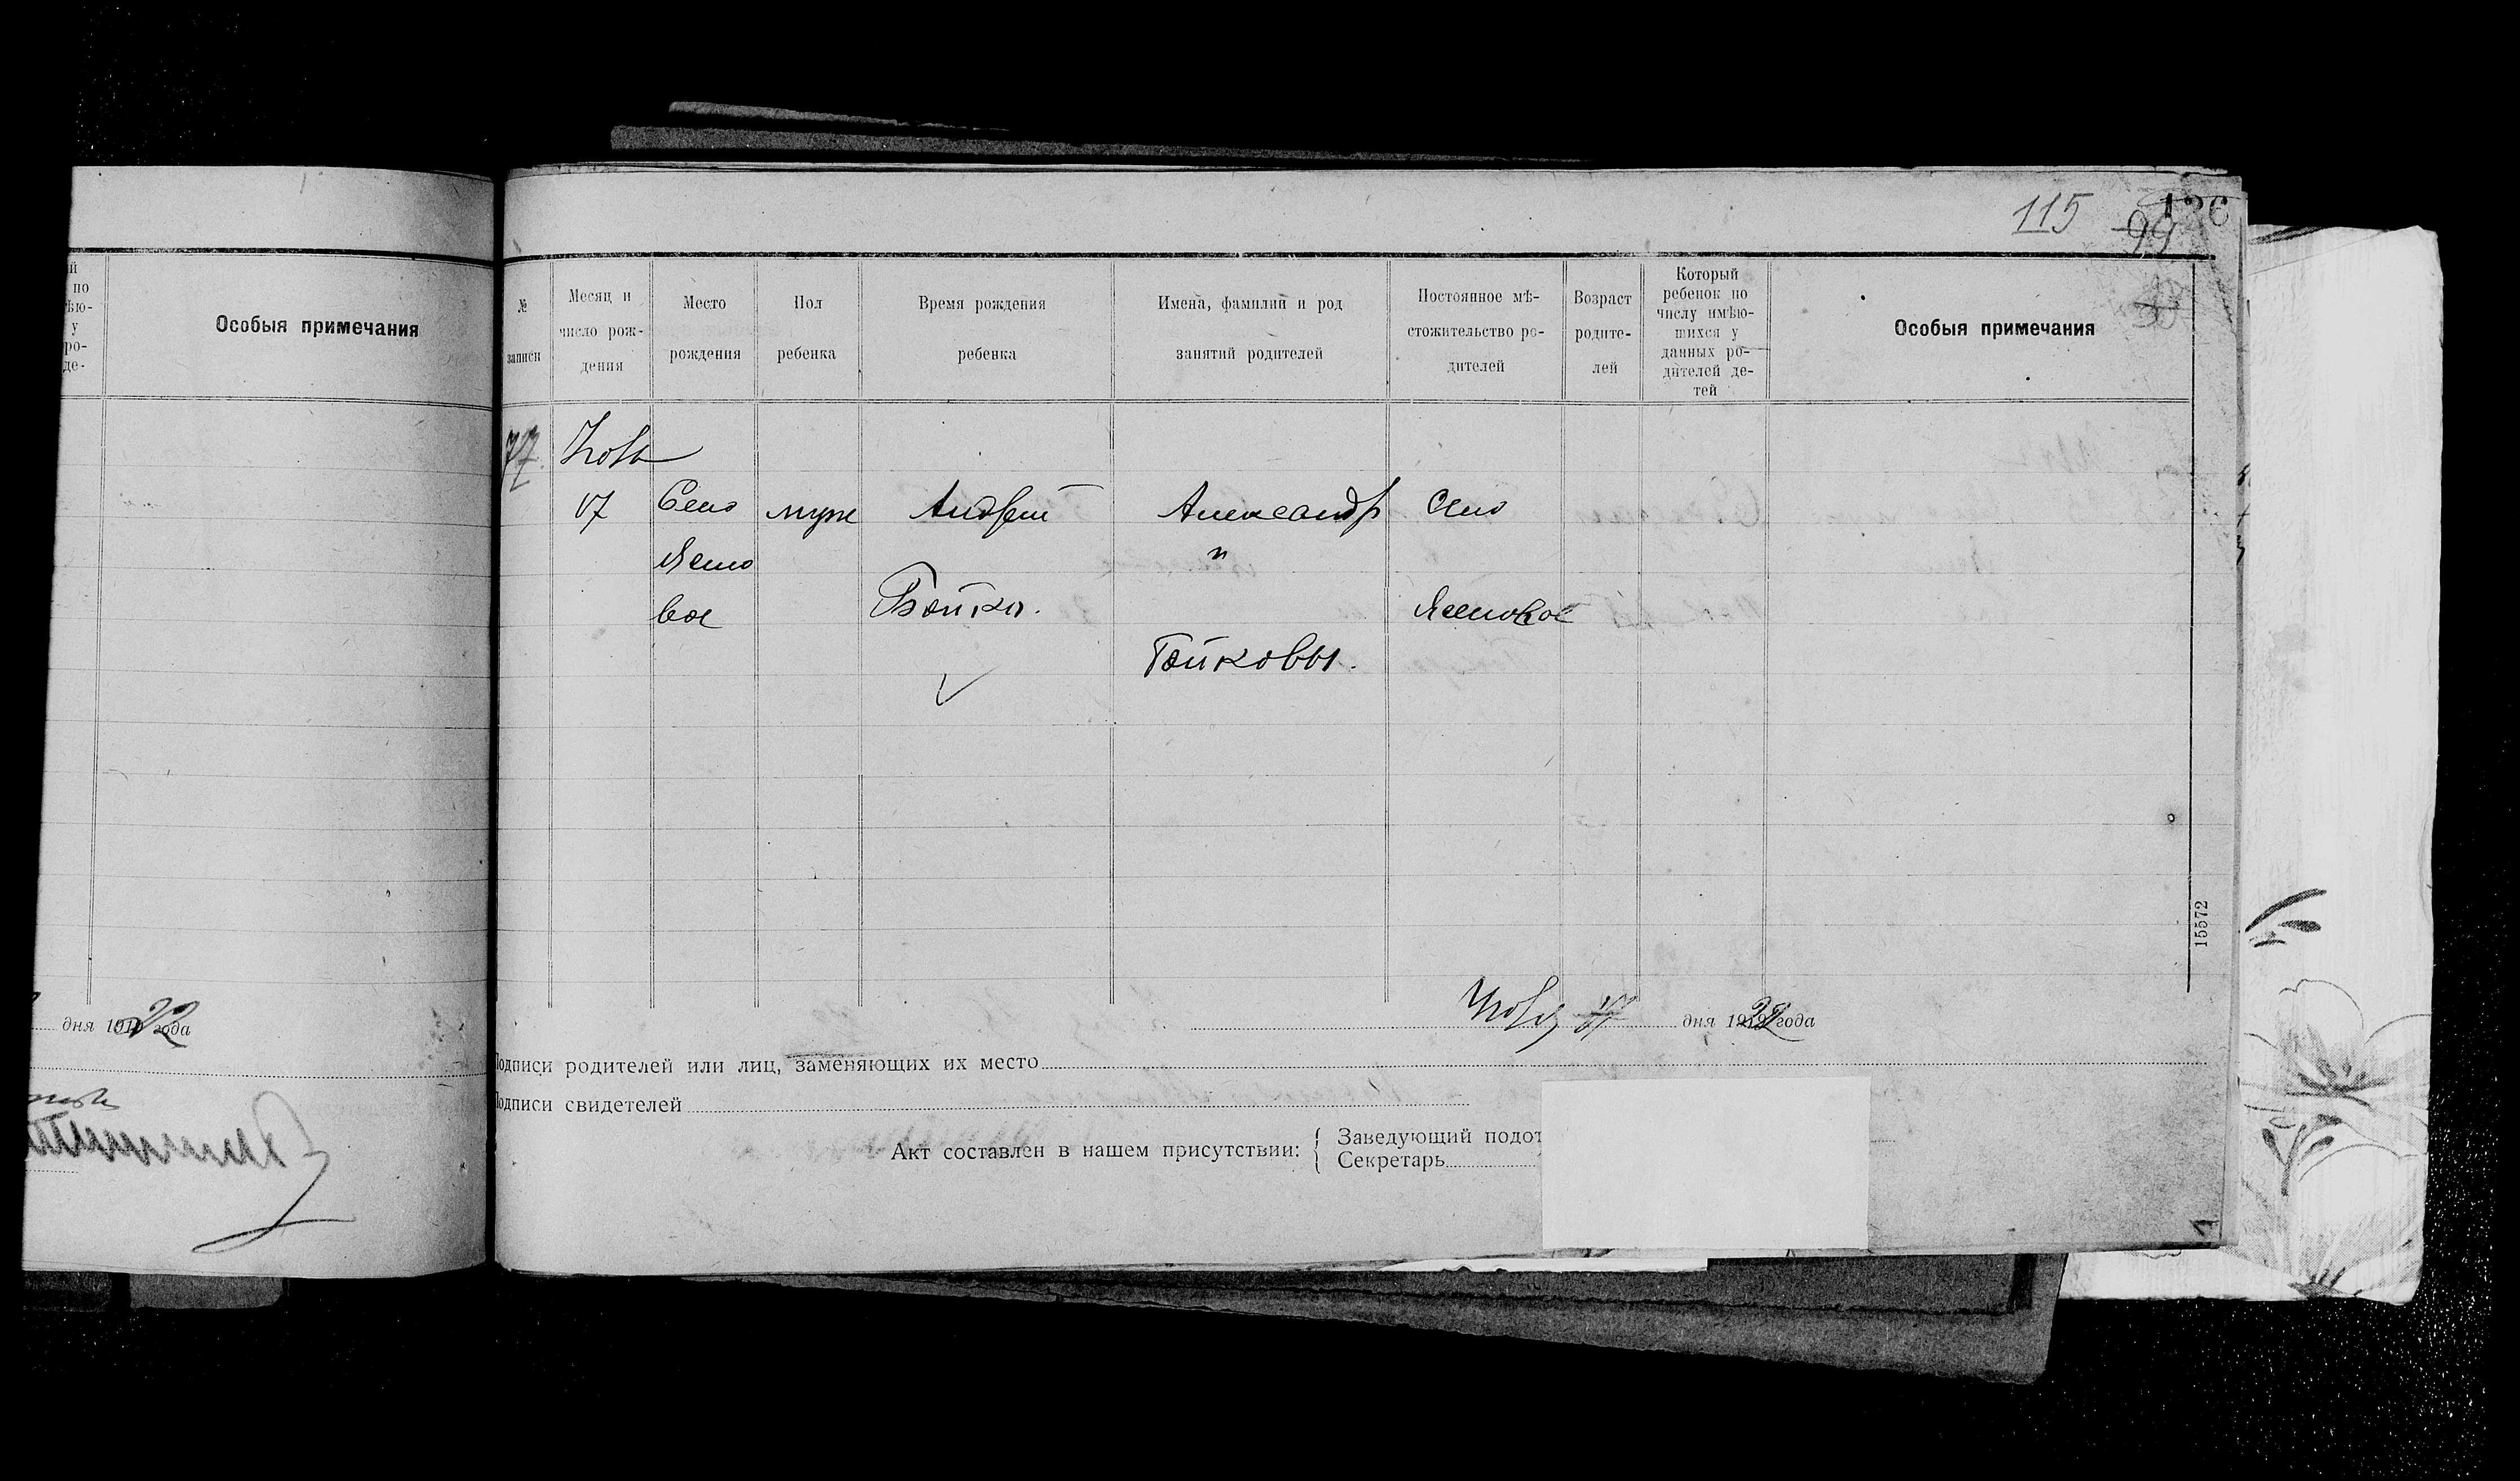 Особыя примечания
дня 1922 года
115
99
126
№ записи
Месяц и число рождения
Место рождения
Пол ребенка
Время рождения ребенка
Имена, фамилии и род занятий родителей
Постоянное мѣстожительство родителей
Возраст родителей
Который ребенок по числу имѣющихся у данных родителей детей
Особыя примечания
77.
17 Село муж Андрей Александр Село
Ясено
и
вое
Бойко.
Ясеновое
Бойковы.
15572
17 дня 1922 года
Подписи родителей или лиц, заменяющих их место
Подписи свидетелей
Акт составлен в нашем присутствии:
Заведующий подот
Секретарь